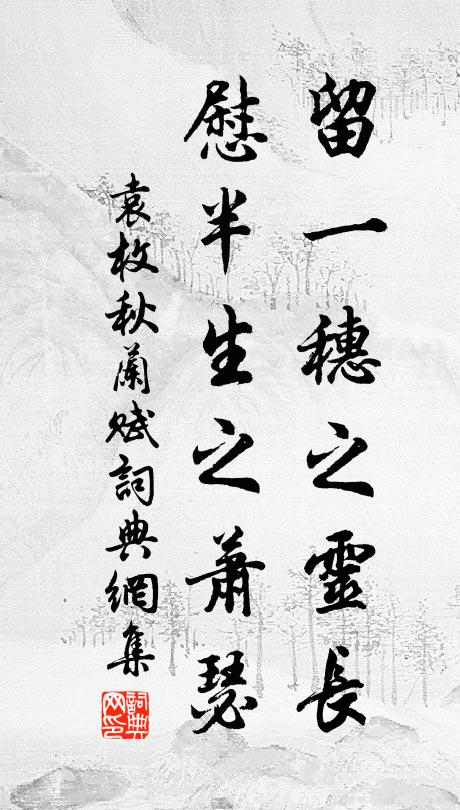 留一穗之靈長
慰半生之蕭瑟
袁枚秋蘭賦詞典網集
詞典网印